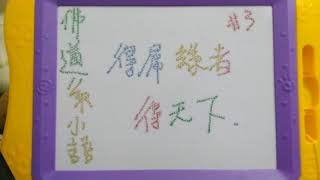 佛道系小語
#3
得屌絲者
得天下.